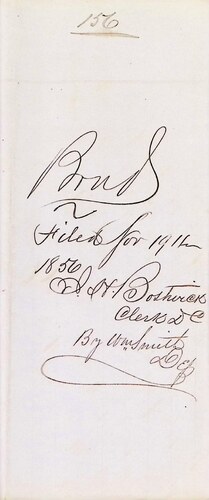 156
Bond
Filed for 19th
1856
H. Bostwick
Clerk D C
By Wm Smith
Dep